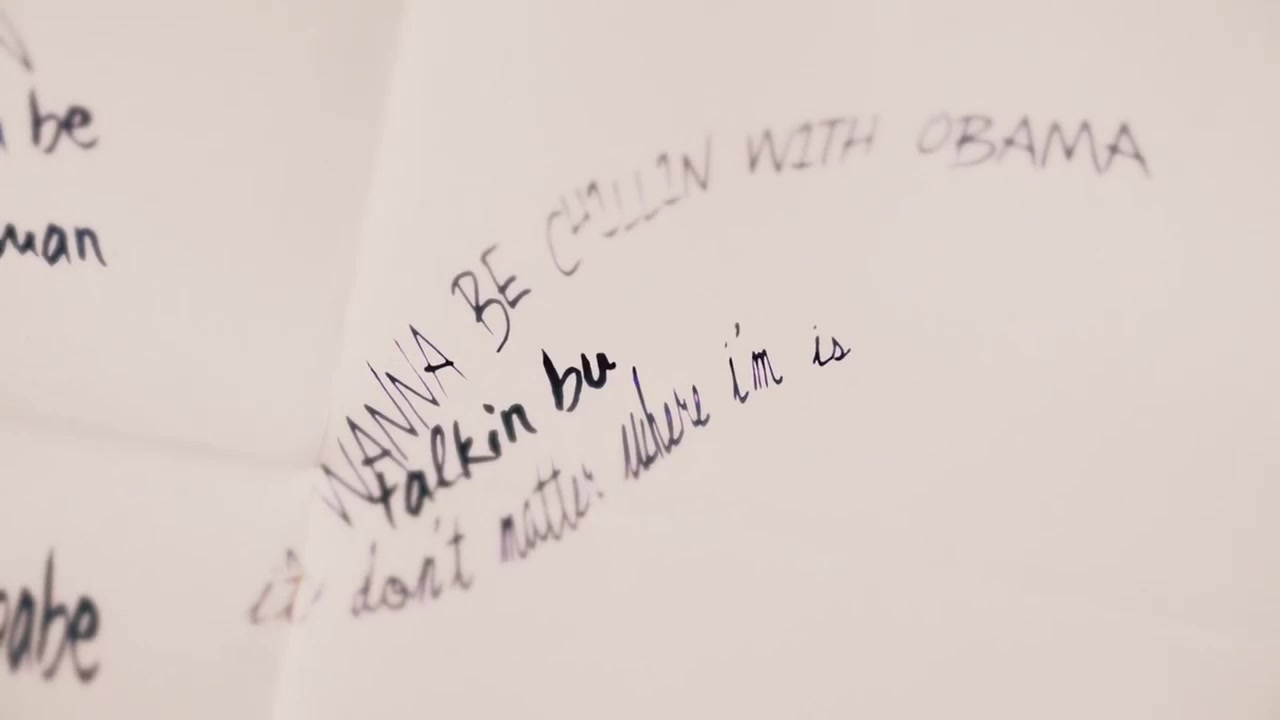 be
man
WANNA BE CHILLIN WITH OBAMA
talkin bu
it don't matter where i'm is
babe